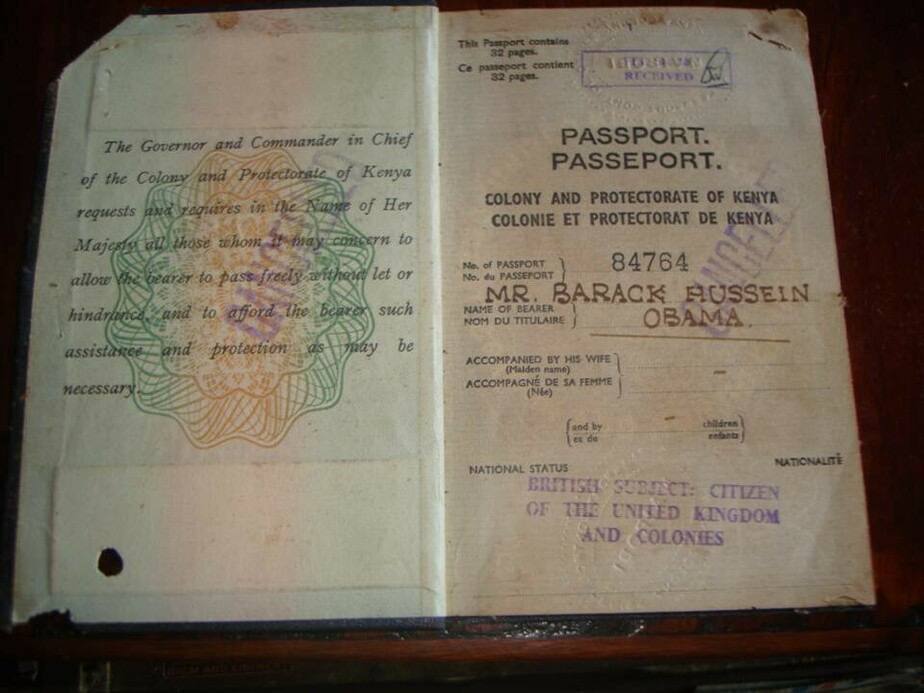 The Governor and Commander in Chief
of the Colony and Protectorate of Kenya
requests and requires in the Name of Her
Majesty all those whom it may concern to
allow the bearer to pass freely without let or
hindrance, and to afford the bearer such
assistance and protection as may be
necessary.
CANCELLED
This Passport contains
32 pages.
Ce passeport contient
32 pages.
RECEIVED
PASSPORT.
PASSEPORT.
COLONY AND PROTECTORATE OF KENYA
COLONIE ET PROTECTORAT DE KENYA
No. of PASSPORT
No. du PASSEPORT
84764
MR. BARACK HUSSEIN
NAME OF BEARER
NOM DU TITULAIRE
OBAMA.
CANCELLED
ACCOMPANIED BY HIS WIFE
(Maiden name)
ACCOMPAGNÉ DE SA FEMME
(Née)
and by children
et de enfants
NATIONAL STATUS NATIONALITÉ
BRITISH SUBJECT: CITIZEN
OF THE UNITED KINGDOM
AND COLONIES